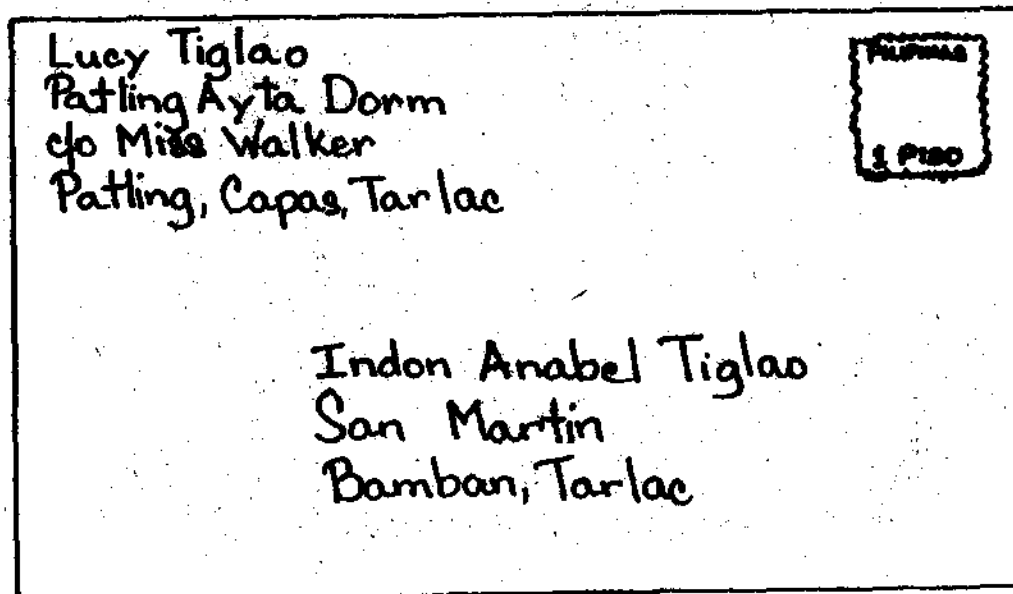 Lucy Tiglao
Patling Ayta Dorm
c/o Miss Walker
Patling, Capas, Tarlac
PILIPINAS
1 PISO
Indon Anabel Tiglao
San Martin
Bamban, Tarlac